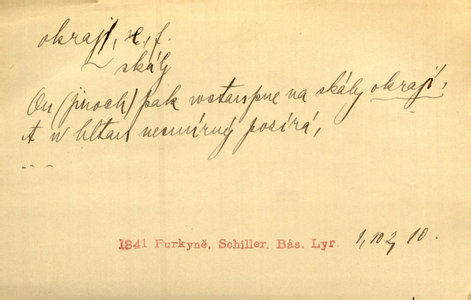 okrají, e, f.
skály
On (jinoch) pak wstaupne na skály okrají,
A w hltan nesmírný posírá,
...
1841 Purkyně, Schiller. Bás. Lyr. 1, 102, 10.